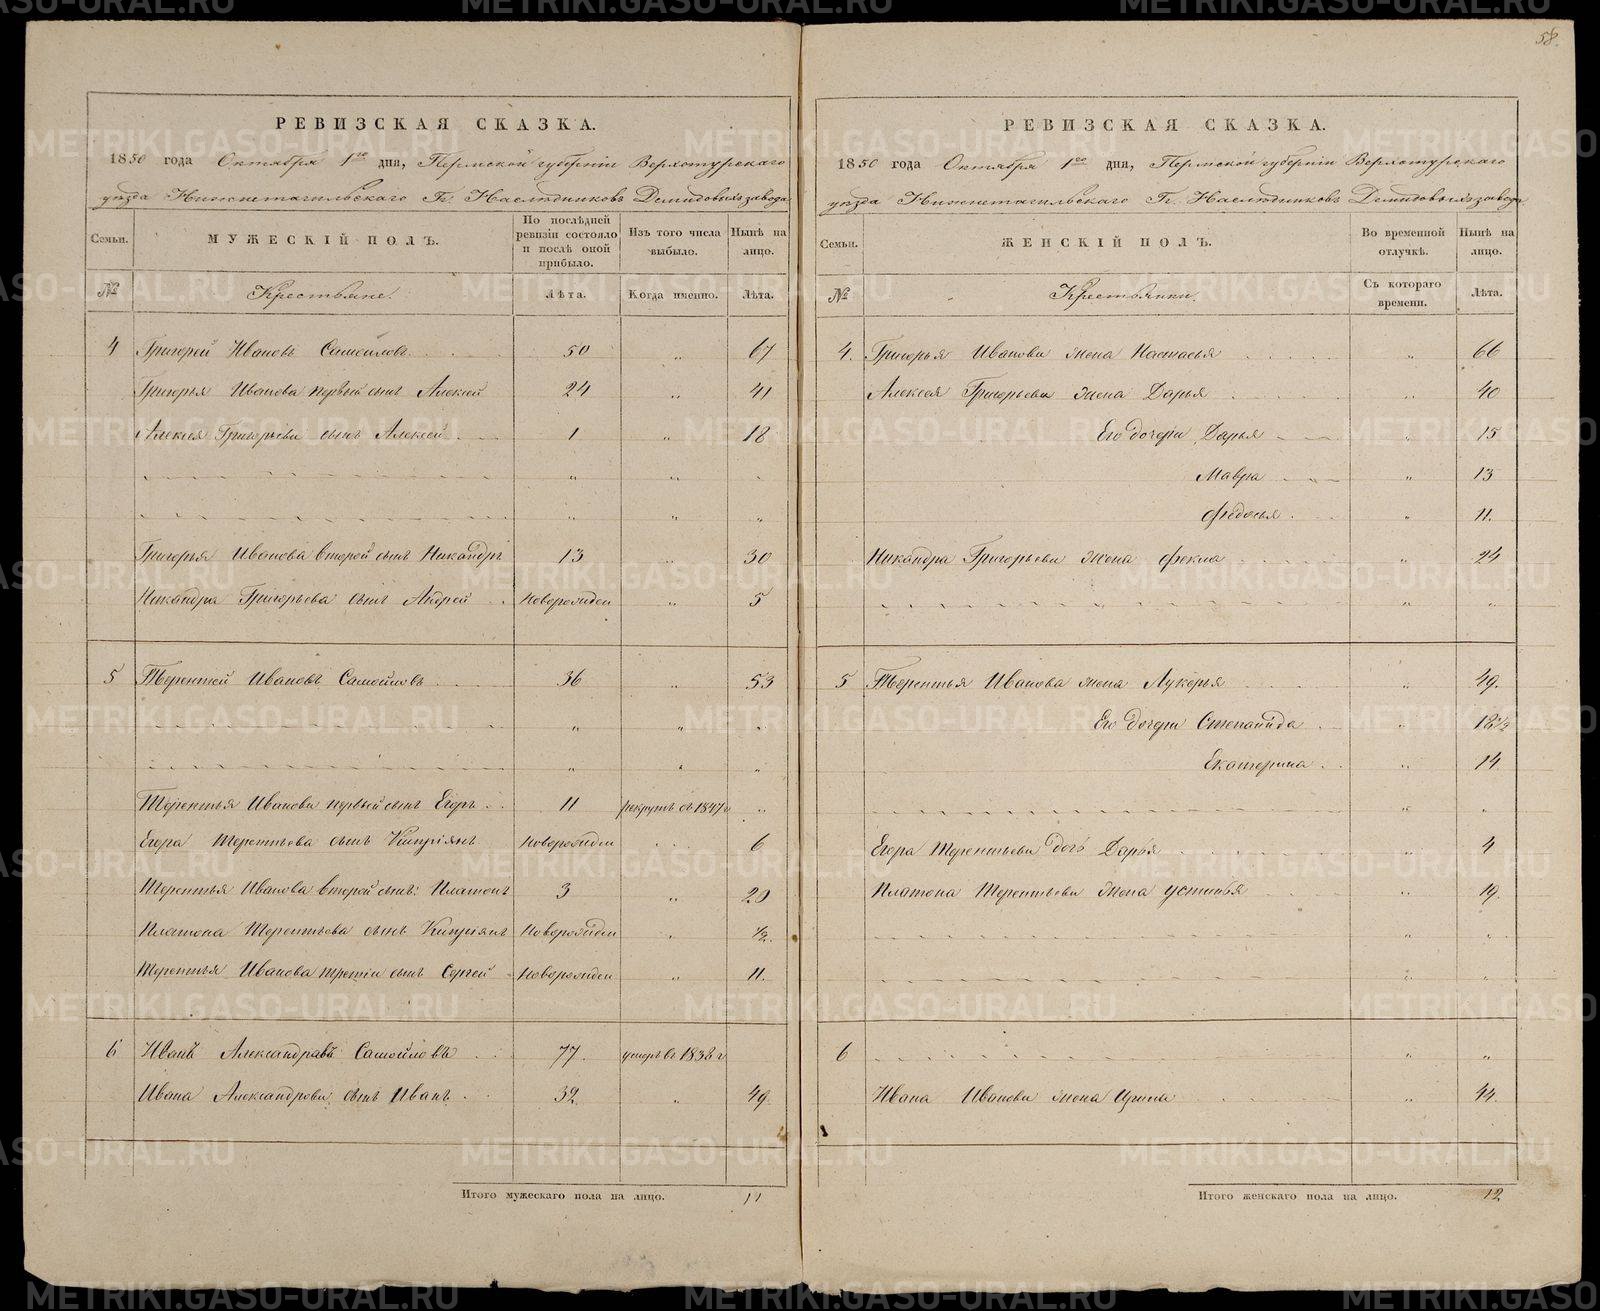 58.
РЕВИЗСКАЯ СКАЗКА.
1850 года Октября 1го дня, Пермской губерніи Верхотурскаго
уѣзда Нижнетагильскаго Гг. Наслѣдниковъ Демидовыхъ завода
Семьи.
МУЖЕСКІЙ ПОЛЪ.
По послѣдней ревизіи состояло и послѣ оной прибыло.
Изъ того числа выбыло.
Нынѣ на лицо.
№ Крестьяне. Лѣта. Когда именно. Лѣта.
4 Григорей Ивановъ Самойловъ 50 „ 67
Григорья Иванова первый сынъ Алексей 24 „ 41
Алексея Григорьева сынъ Алексей 1 „ 18
Григорья Иванова второй сынъ Никандръ 13 „ 30
Никандра Григорьева сынъ Андрей Новорожден „ 5
5 Терентей Ивановъ Самойловъ 36 „ 53
Терентья Иванова первый сынъ Егоръ 11 рекрутъ въ 1847 г „
Егора Терентьева сынъ Кипріянъ Новорожден 6
Терентья Иванова второй сынъ Платонъ 3 „ 20
Платона Терентьева сынъ Кипріянъ Новорожден „ 1/2
Терентья Иванова третій сынъ Сергей Новорожден „ 11.
6 Иванъ Александравъ Самойловъ 77 умеръ въ 1838 г
Ивана Александрова сынъ Иванъ 32 „ 49
Итого мужескаго пола на лицо. 11
РЕВИЗСКАЯ СКАЗКА.
1850 года Октября 1го дня, Пермской губерніи Верхотурскаго
уѣзда Нижнетагильскаго Гг. Наслѣдниковъ Демидовыхъ завода
Семьи.
ЖЕНСКІЙ ПОЛЪ.
Во временной отлучкѣ.
Нынѣ на лицо.
№ Крестьянки. Съ котораго времени. Лѣта.
4. Григорья Иванова жена Настасья „ 66
Алексея Григорьева жена Дарья „ 40
Его дочери Дарья „ 15
Мавра „ 13
Федосья „ 11.
Никандра Григорьева жена Фекла „ 24
5 Терентья Иванова жена Лукерья „ 49.
Его дочери Степанида „ 18 1/2
Екатерина „ 14
Егора Терентьева дочь Дарья „ 4
Платона Терентьева жена Устинья „ 19.
6 „ „
Ивана Иванова жена Ирина „ 44
Итого женскаго пола на лицо. 12
METRIKI.GASO-URAL.RU